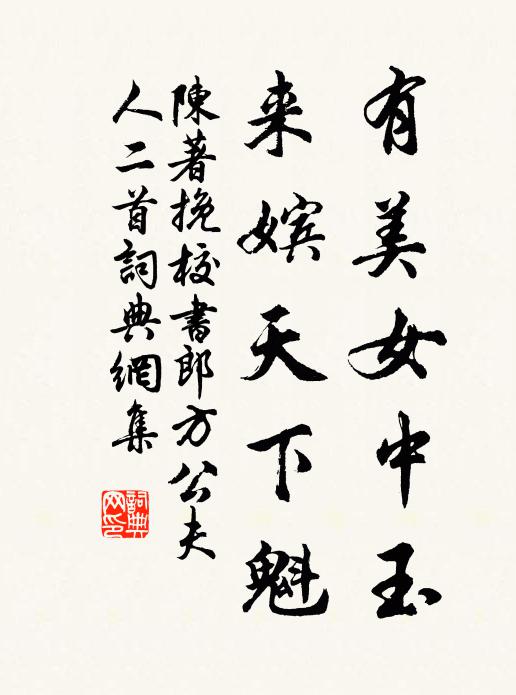 有美女中玉
来嬪天下魁
陳著挽校書郎方公夫
人二首詞典網集
詞典網印